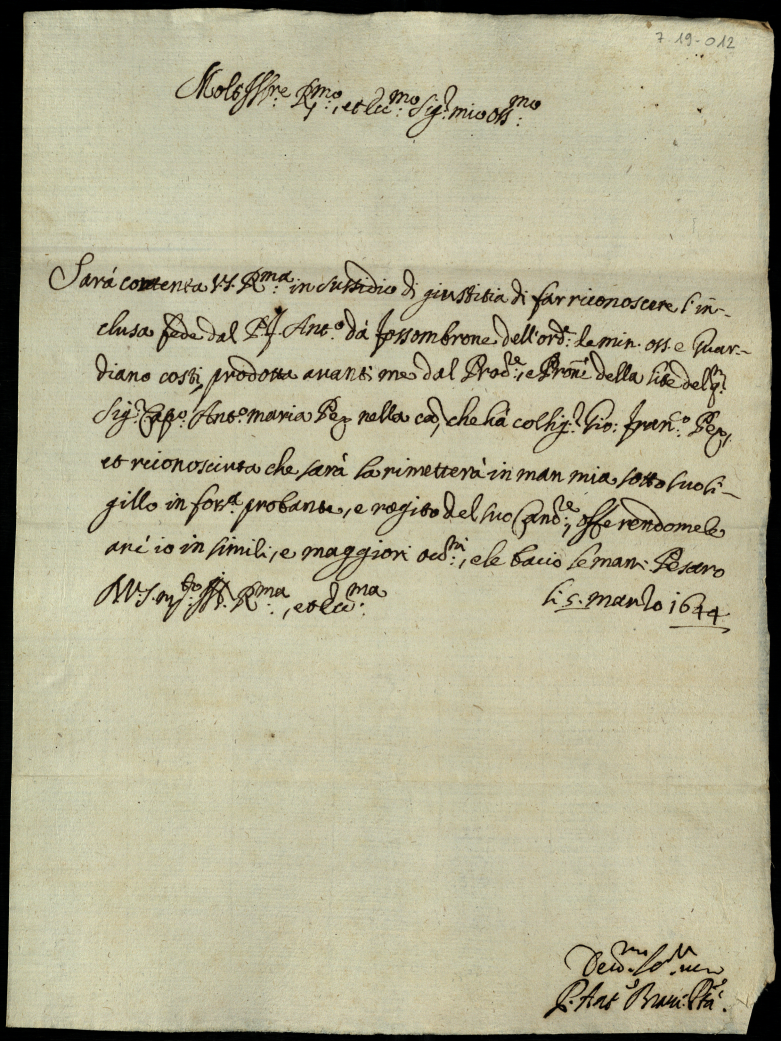 7-19-012
Molt Ill.re R.mo, et Ecc.mo Sig.r mio oss.mo
Sarà contenta V.S. R.ma in sussidio di giustitia di far riconoscere l'in-
clusa fede dal P. f. Ant.o da fossombrone dell'ord. de min. oss. e Guar-
diano costì, prodotta avanti me dal Prod.re, e Prone della lite del q.
Sig.r Cap.o Ant.o maria Pez nella ca, che hà col Sig.r Gio: fran.co Pez,
et riconosciuta che sarà la rimetterà in man mia sotto suo si-
gillo in for.a probante, e rogito del suo Canc.re, offerendomele
anc'io in simili, e maggiori occ.ni, e le bacio le mani. Pesaro
D V.S. m.to Ill. R.ma, et Ecc.ma li 5. marzo 1644
Dev.mo Se.re vero
P. Ant.o